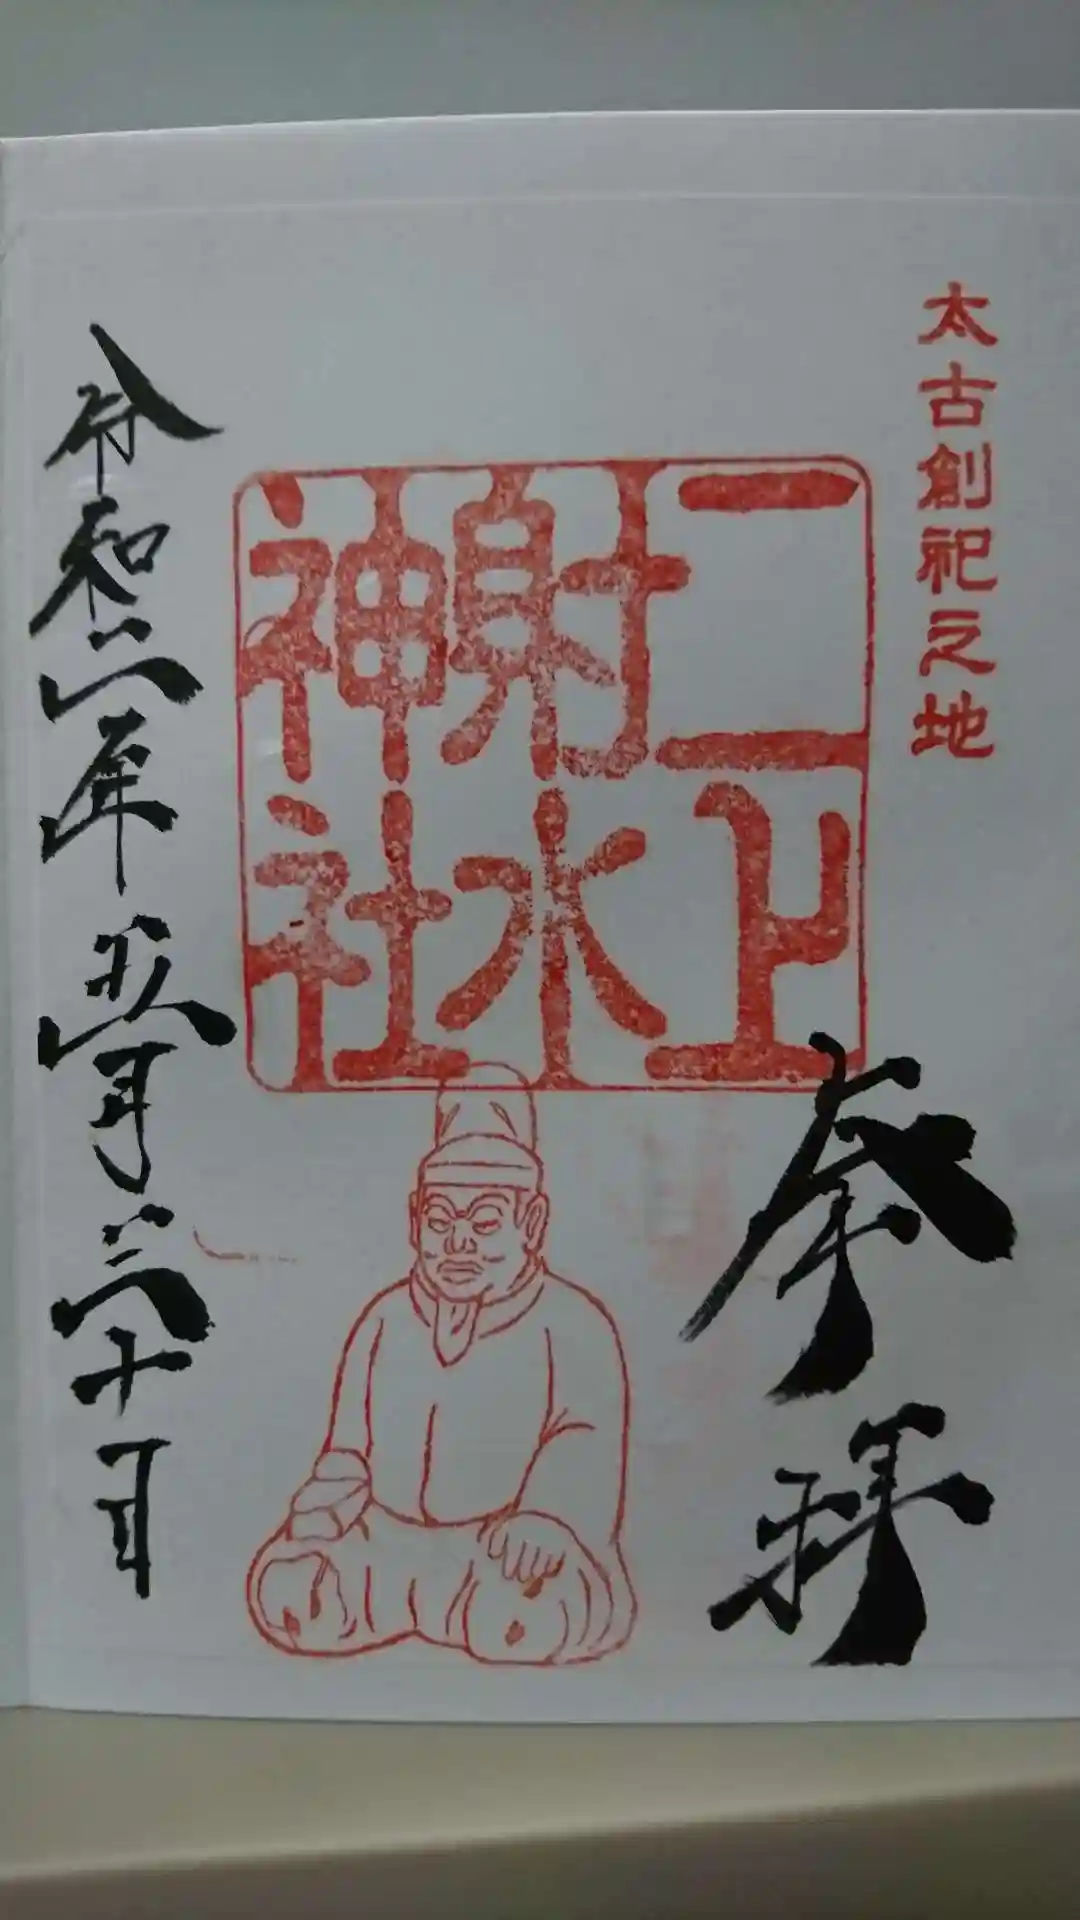 太古創祀之地
奉拝
二上
射水
神社
令和六年月三十日